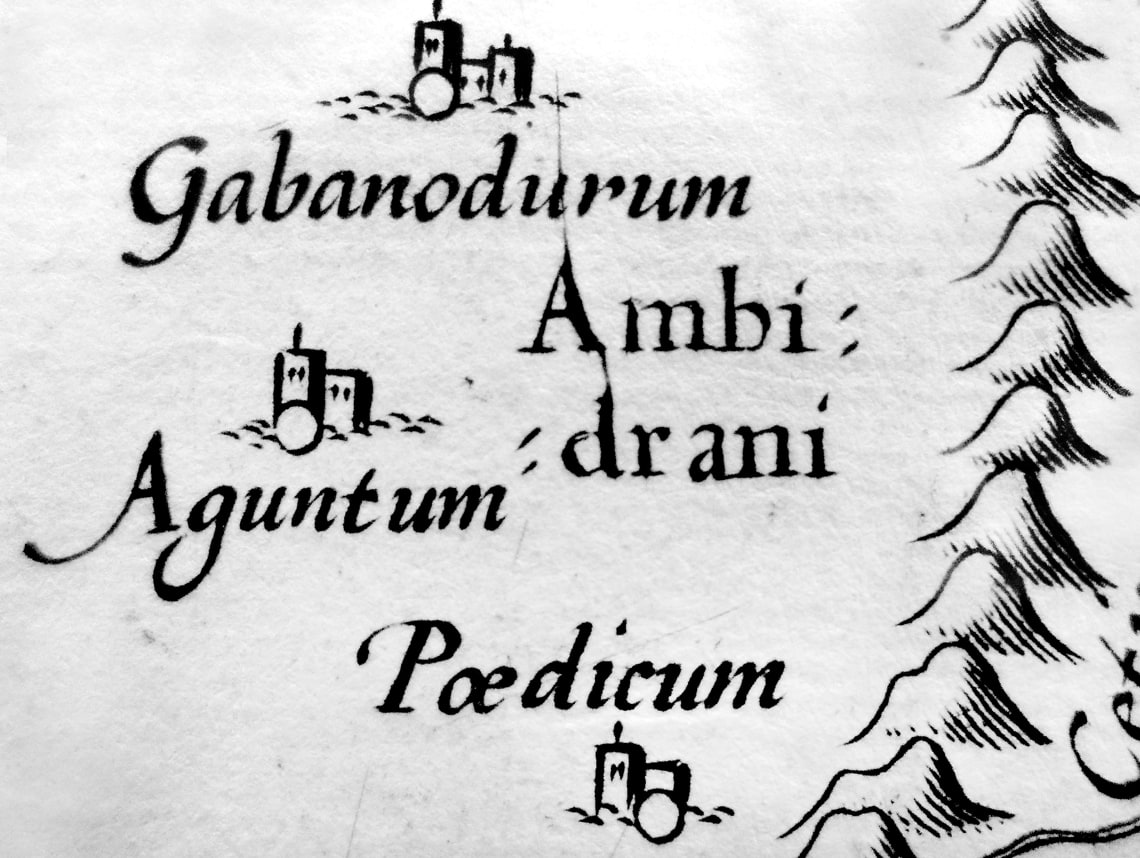 Gabanodurum
Ambi⸗
⸗drani
Aguntum
Pœdicum